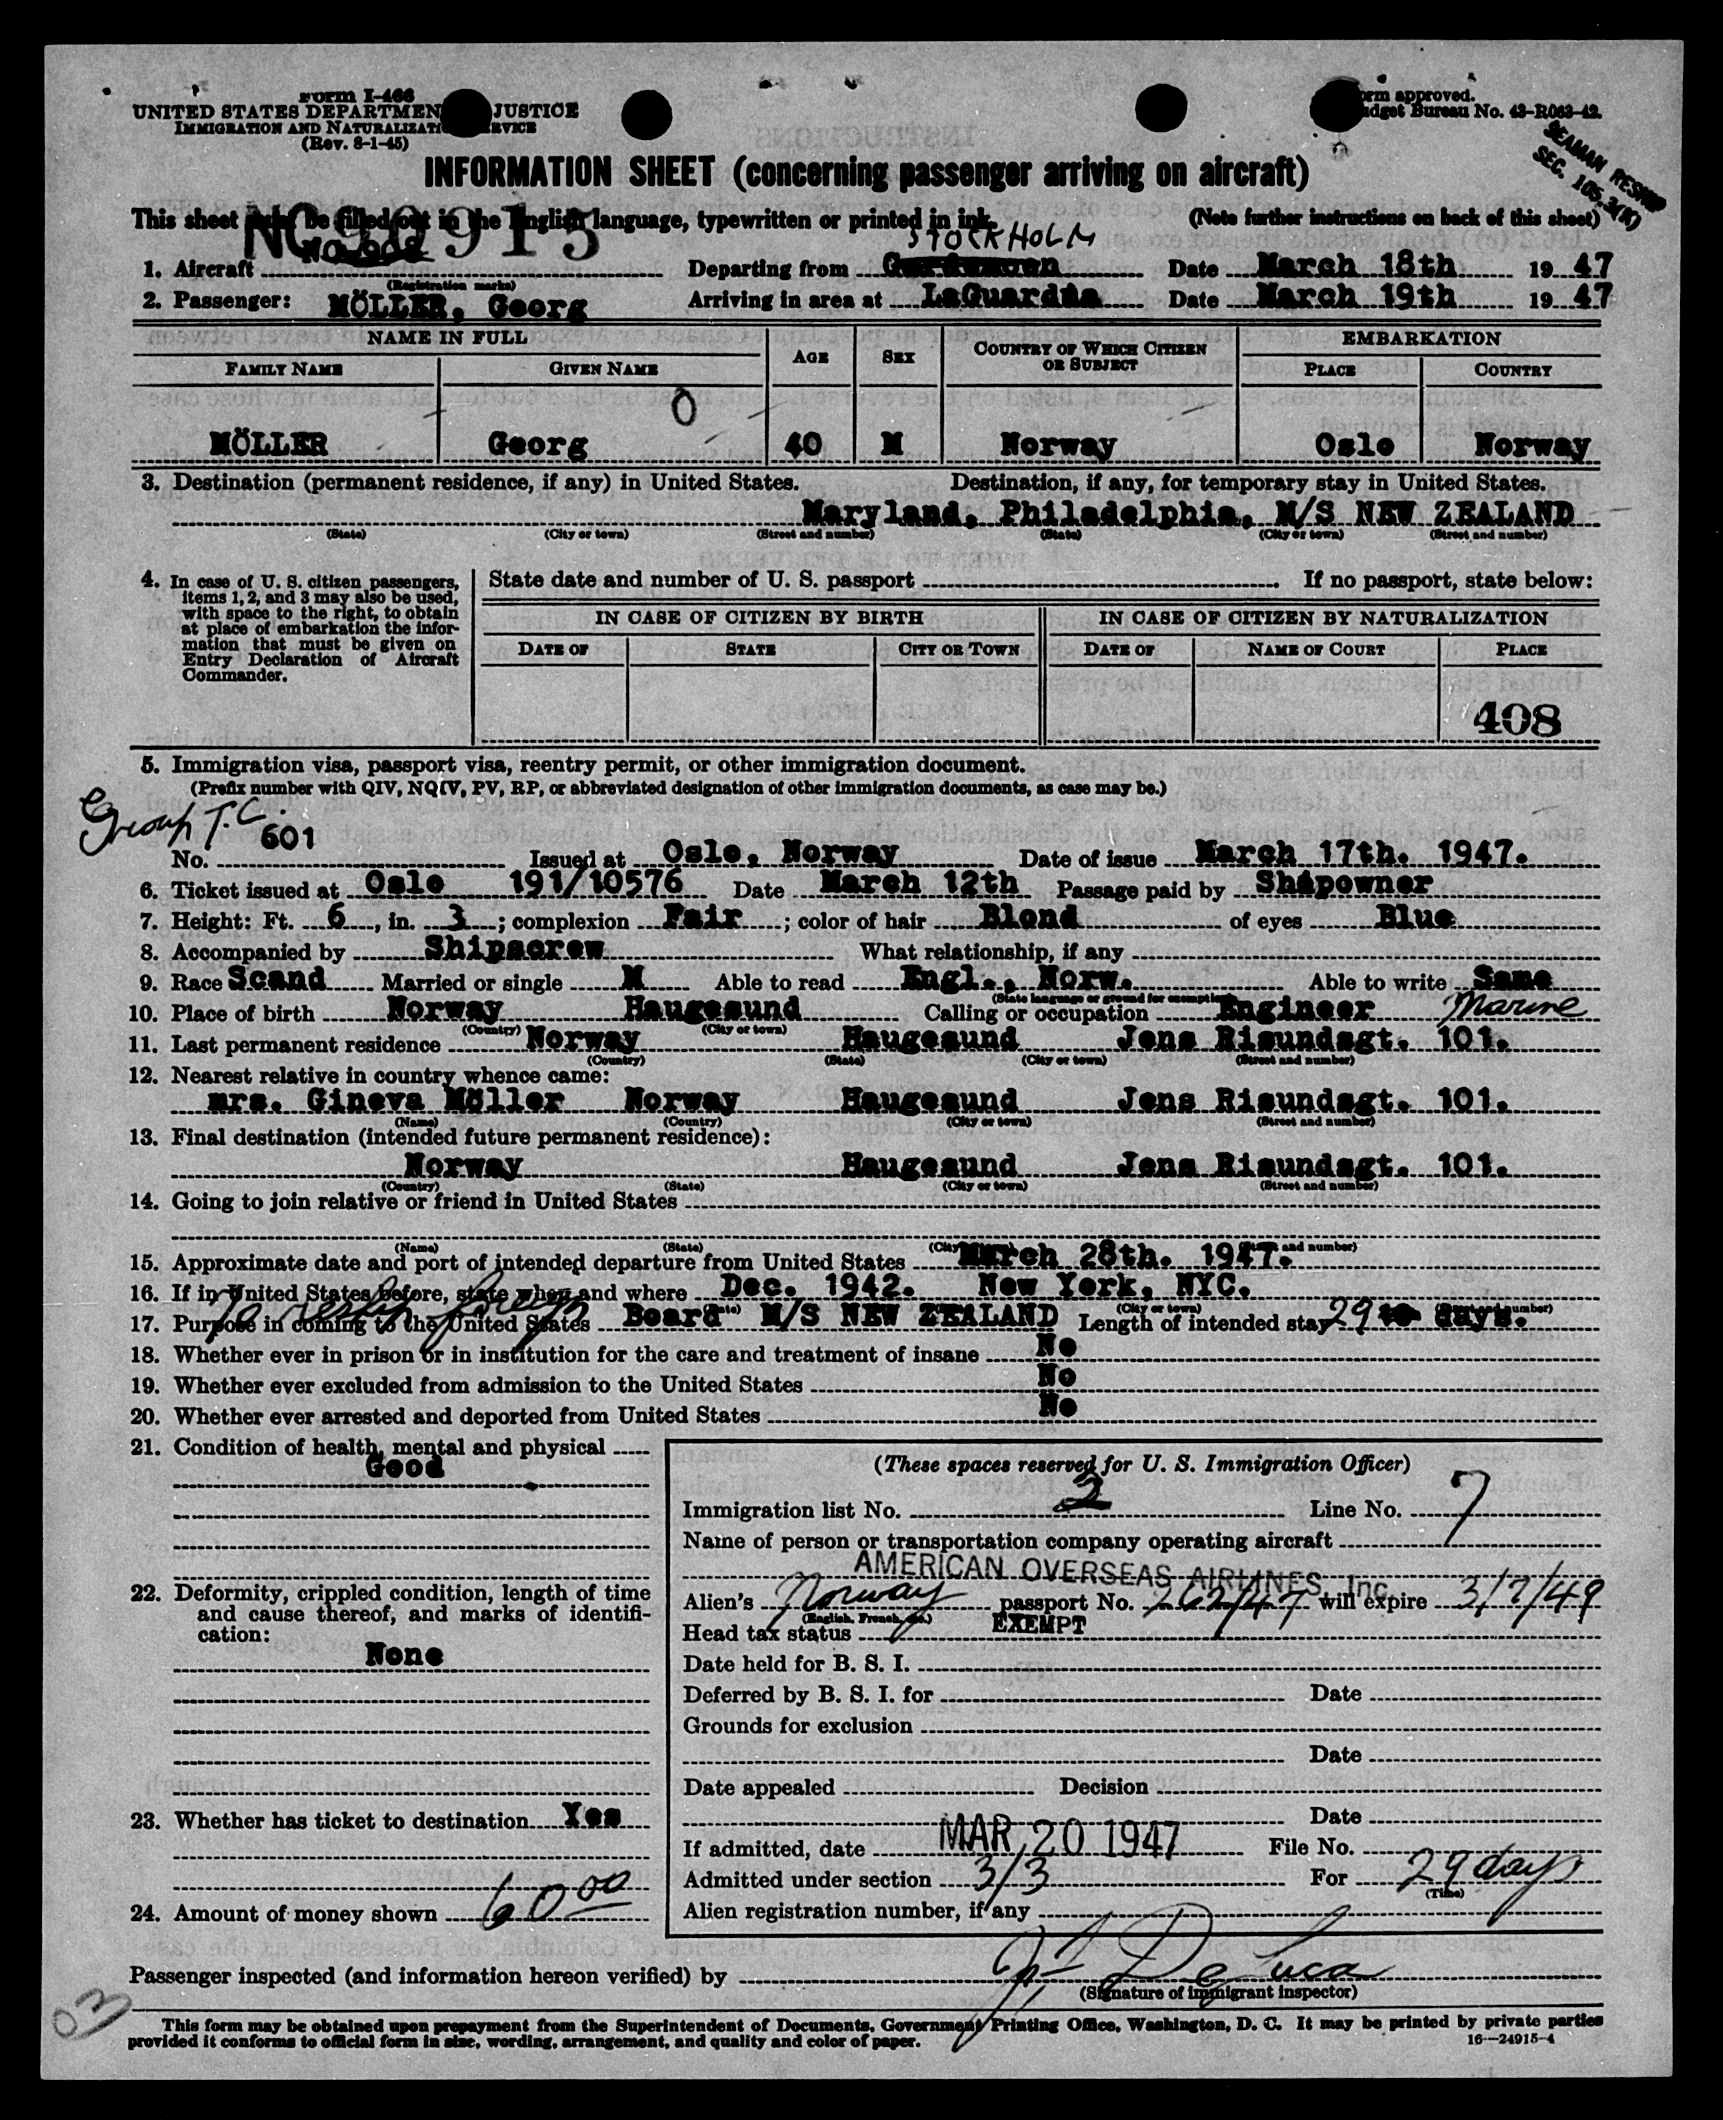 Form I-466
UNITED STATES DEPARTMEN JUSTICE
IMMIGRATION AND NATURALIZATI RVICE
(Rev. 8-1-45)
orm approved.
udget Bureau No. 43-R063-42.
SEAMAN RESHIP
SEC. 105.3(K)
INFORMATION SHEET (concerning passenger arriving on aircraft)
This sheet must be filled out in the English language, typewritten or printed in ink.
(Note further instructions on back of this sheet)
STOCKHOLM
1. Aircraft Departing from Date March 18th 19 47
(Registration marks)
2. Passenger: MÖLLER, Georg Arriving in area at LaGuardia Date March 19th 19 47
NAME IN FULL AGE SEX COUNTRY OF WHICH CITIZEN OR SUBJECT EMBARKATION
FAMILY NAME GIVEN NAME PLACE COUNTRY
0
MÖLLER Georg 40 M Norway Oslo Norway
3. Destination (permanent residence, if any) in United States. Destination, if any, for temporary stay in United States.
Maryland, Philadelphia, M/S NEW ZEALAND
(State) (City or town) (Street and number) (State) (City or town) (Street and number)
4. In case of U. S. citizen passengers, items 1, 2, and 3 may also be used, with space to the right, to obtain at place of embarkation the information that must be given on Entry Declaration of Aircraft Commander.
State date and number of U. S. passport . If no passport, state below:
IN CASE OF CITIZEN BY BIRTH IN CASE OF CITIZEN BY NATURALIZATION
DATE OF STATE CITY OR TOWN DATE OF NAME OF COURT PLACE
408
5. Immigration visa, passport visa, reentry permit, or other immigration document.
(Prefix number with QIV, NQIV, PV, RP, or abbreviated designation of other immigration documents, as case may be.)
Group T.C.
No. 601 Issued at Oslo, Norway Date of issue March 17th. 1947.
6. Ticket issued at Oslo 191/10576 Date March 12th Passage paid by Shipowner
7. Height: Ft. 6, in. 3; complexion Fair; color of hair Blond of eyes Blue
8. Accompanied by Shipscrew What relationship, if any
9. Race Scand Married or single M Able to read Engl., Norw. Able to write Same
(State language or ground for exemption)
10. Place of birth Norway Haugesund Calling or occupation Engineer Marine
(Country) (City or town)
11. Last permanent residence Norway Haugesund Jens Risundsgt. 101.
(Country) (State) (City or town) (Street and number)
12. Nearest relative in country whence came:
mrs. Gineva Möller Norway Haugesund Jens Risundsgt. 101.
(Name) (Country) (City or town) (Street and number)
13. Final destination (intended future permanent residence):
Norway Haugesund Jens Risundsgt. 101.
(Country) (State) (City or town) (Street and number)
14. Going to join relative or friend in United States
(Name) (State) (City and number)
15. Approximate date and port of intended departure from United States March 28th. 1947.
16. If in United States before, state when and where Dec. 1942. New York, NYC.
(City or town) (Street and number)
To reship foreign
17. Purpose in coming to the United States Board M/S NEW ZEALAND Length of intended stay 29 days.
18. Whether ever in prison or in institution for the care and treatment of insane No
19. Whether ever excluded from admission to the United States No
20. Whether ever arrested and deported from United States No
21. Condition of health, mental and physical
Good
22. Deformity, crippled condition, length of time and cause thereof, and marks of identification:
None
23. Whether has ticket to destination Yes
24. Amount of money shown 60 00
(These spaces reserved for U. S. Immigration Officer)
Immigration list No. 2 Line No. 7
Name of person or transportation company operating aircraft
AMERICAN OVERSEAS AIRLINES, Inc.
Alien's Norway passport No. 262/47 will expire 3/7/49
(English, French, etc.)
Head tax status EXEMPT
Date held for B. S. I.
Deferred by B. S. I. for Date
Grounds for exclusion
Date
Date appealed Decision
Date
If admitted, date MAR 20 1947 File No.
Admitted under section 3/3 For 29 days
(Time)
Alien registration number, if any
Passenger inspected (and information hereon verified) by De Luca
(Signature of immigrant inspector)
03
This form may be obtained upon prepayment from the Superintendent of Documents, Government Printing Office, Washington, D. C. It may be printed by private parties
provided it conforms to official form in size, wording, arrangement, and quality and color of paper.
16—24915-4